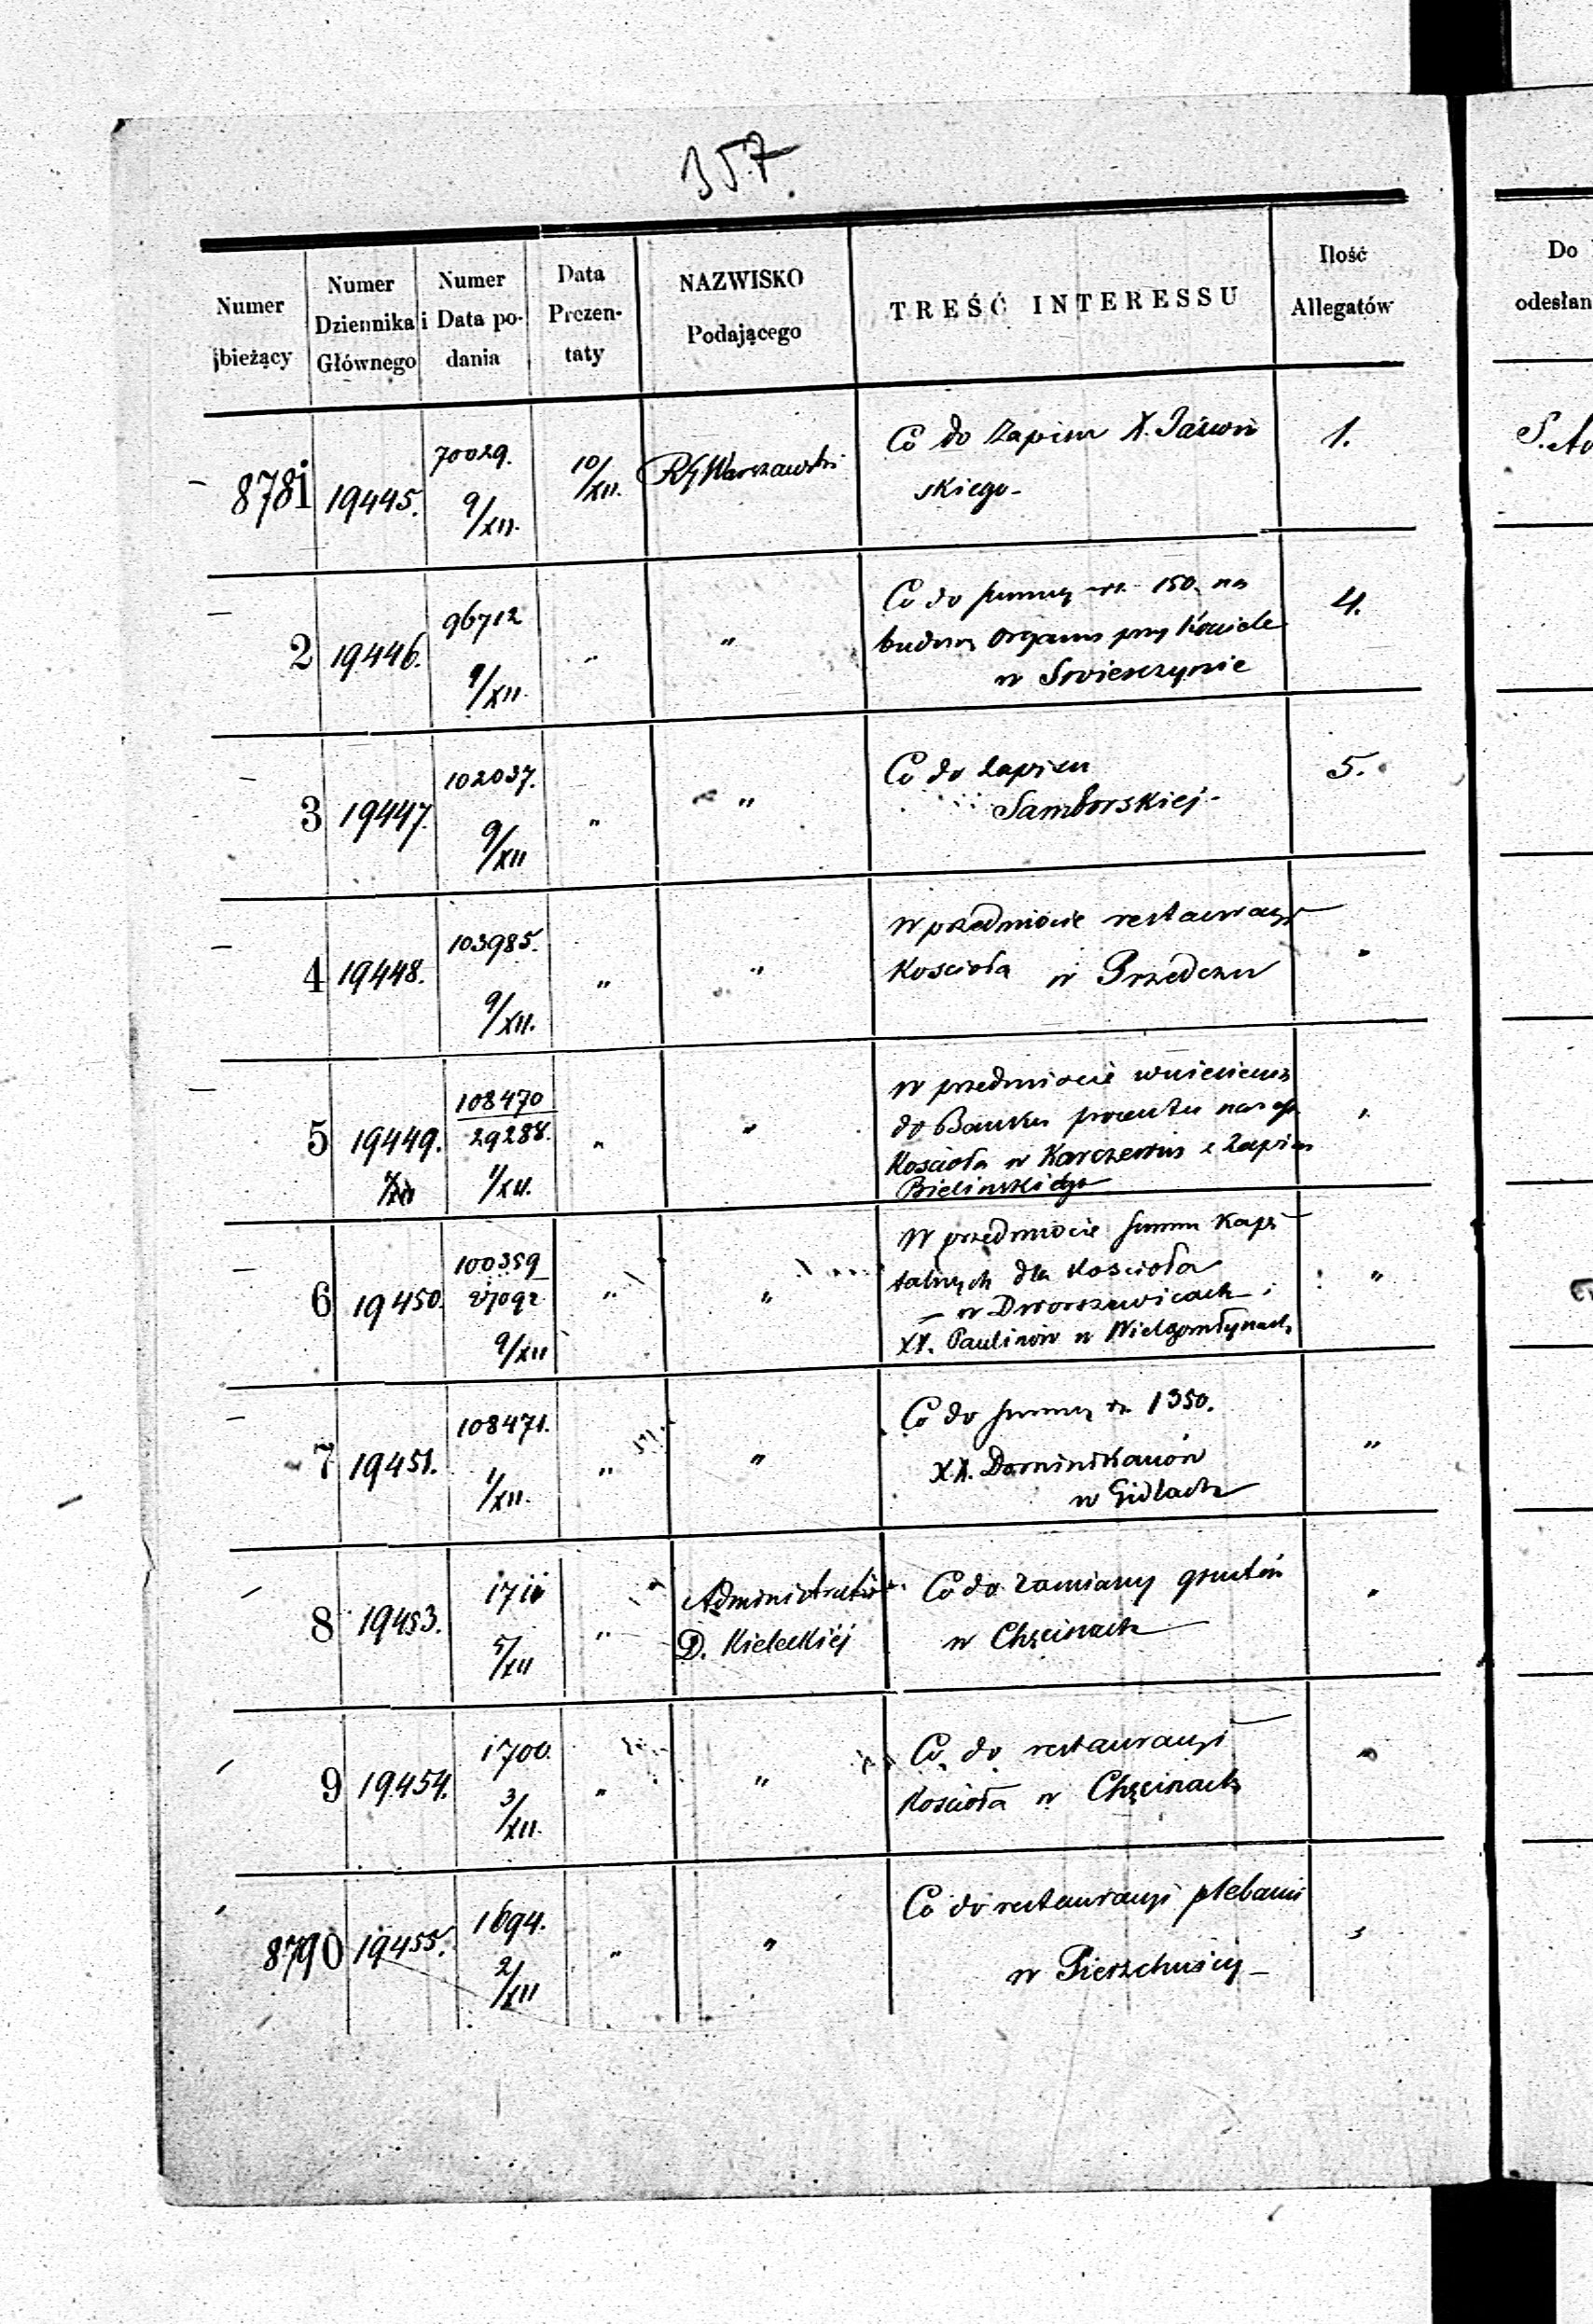 357.
Numer
bieżący
Numer
Dziennika
Głównego
Numer
i Data po-
dania
Data
Prezen-
taty
NAZWISKO
Podającego
TREŚĆ INTERESSU
Ilość
Allegatów
Do
odesłan
8781 19445. 70029. 9/XII. 10/XII. RG Warszawski
Co do Zapisu X. Jaźwiń
skiego-
1.
2 19446. 96712 9/XII. " "
Co do summy rs. 150. na
budowę organu przy Kościele
w Swierczynie
4.
3 19447. 102037. 9/XII " "
Co do Zapisu
Samborskiej-
5.
4 19448. 103985. 9/XII. " "
W przedmiocie restauracyi
Kościoła w Przedczu
"
5 19449. 108470/29288. 1/XII. " "
W przedmiocie wniesienia
do Banku procentu
Kościoła w Karczewiu z Zapisu
Bielinskiego
"
6 19450. 100359 27092 9/XII " "
W przedmiocie summ Kapi
talnych dla Kościoła
w Dworszowicach i
XX. Paulinów w Wielgomłynach
"
7 19451. 108471. 1/XII. " "
Co do summy rs. 1350.
X.X. Dominikanów
w Gidlach
"
8 19453. 1711 5/XII " Administrator
D. Kieleckiéj
Co do zamiany gruntów
w Chęcinach
"
9 19454. 1700. 3/XII. " "
Co do restauracyi
Kościoła w Chęcinach
"
8790 19455. 1694. 2/XII " "
Co do restauracyi plebanii
w Pierzchnicy-
"